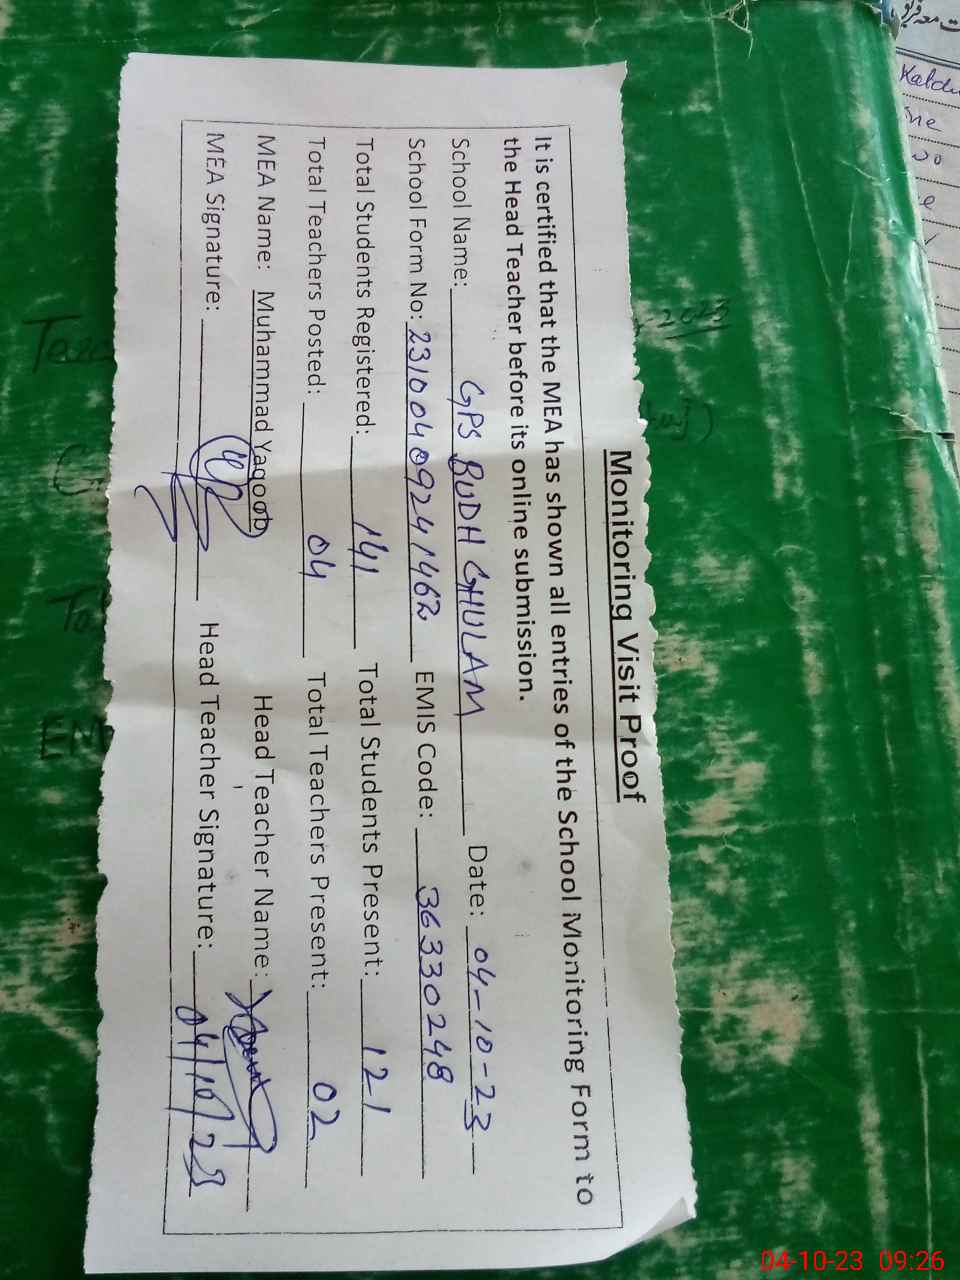 Monitoring Visit Proof
It is certified that the MEA has shown all entries of the School Monitoring Form to
the Head Teacher before its online submission.
School Name: GPS BUDH GHULAM Date: 04-10-23
School Form No: 23100409241462 EMIS Code: 36330248
Total Students Registered: 141 Total Students Present: 121
Total Teachers Posted: 04 Total Teachers Present: 02
MEA Name: Muhammad Yaqoob Head Teacher Name:
MEA Signature: Head Teacher Signature: 04/10/23
2023
04-10-23 09:26